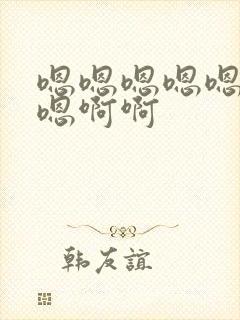 嗯嗯嗯嗯嗯
嗯啊啊
韩友谊